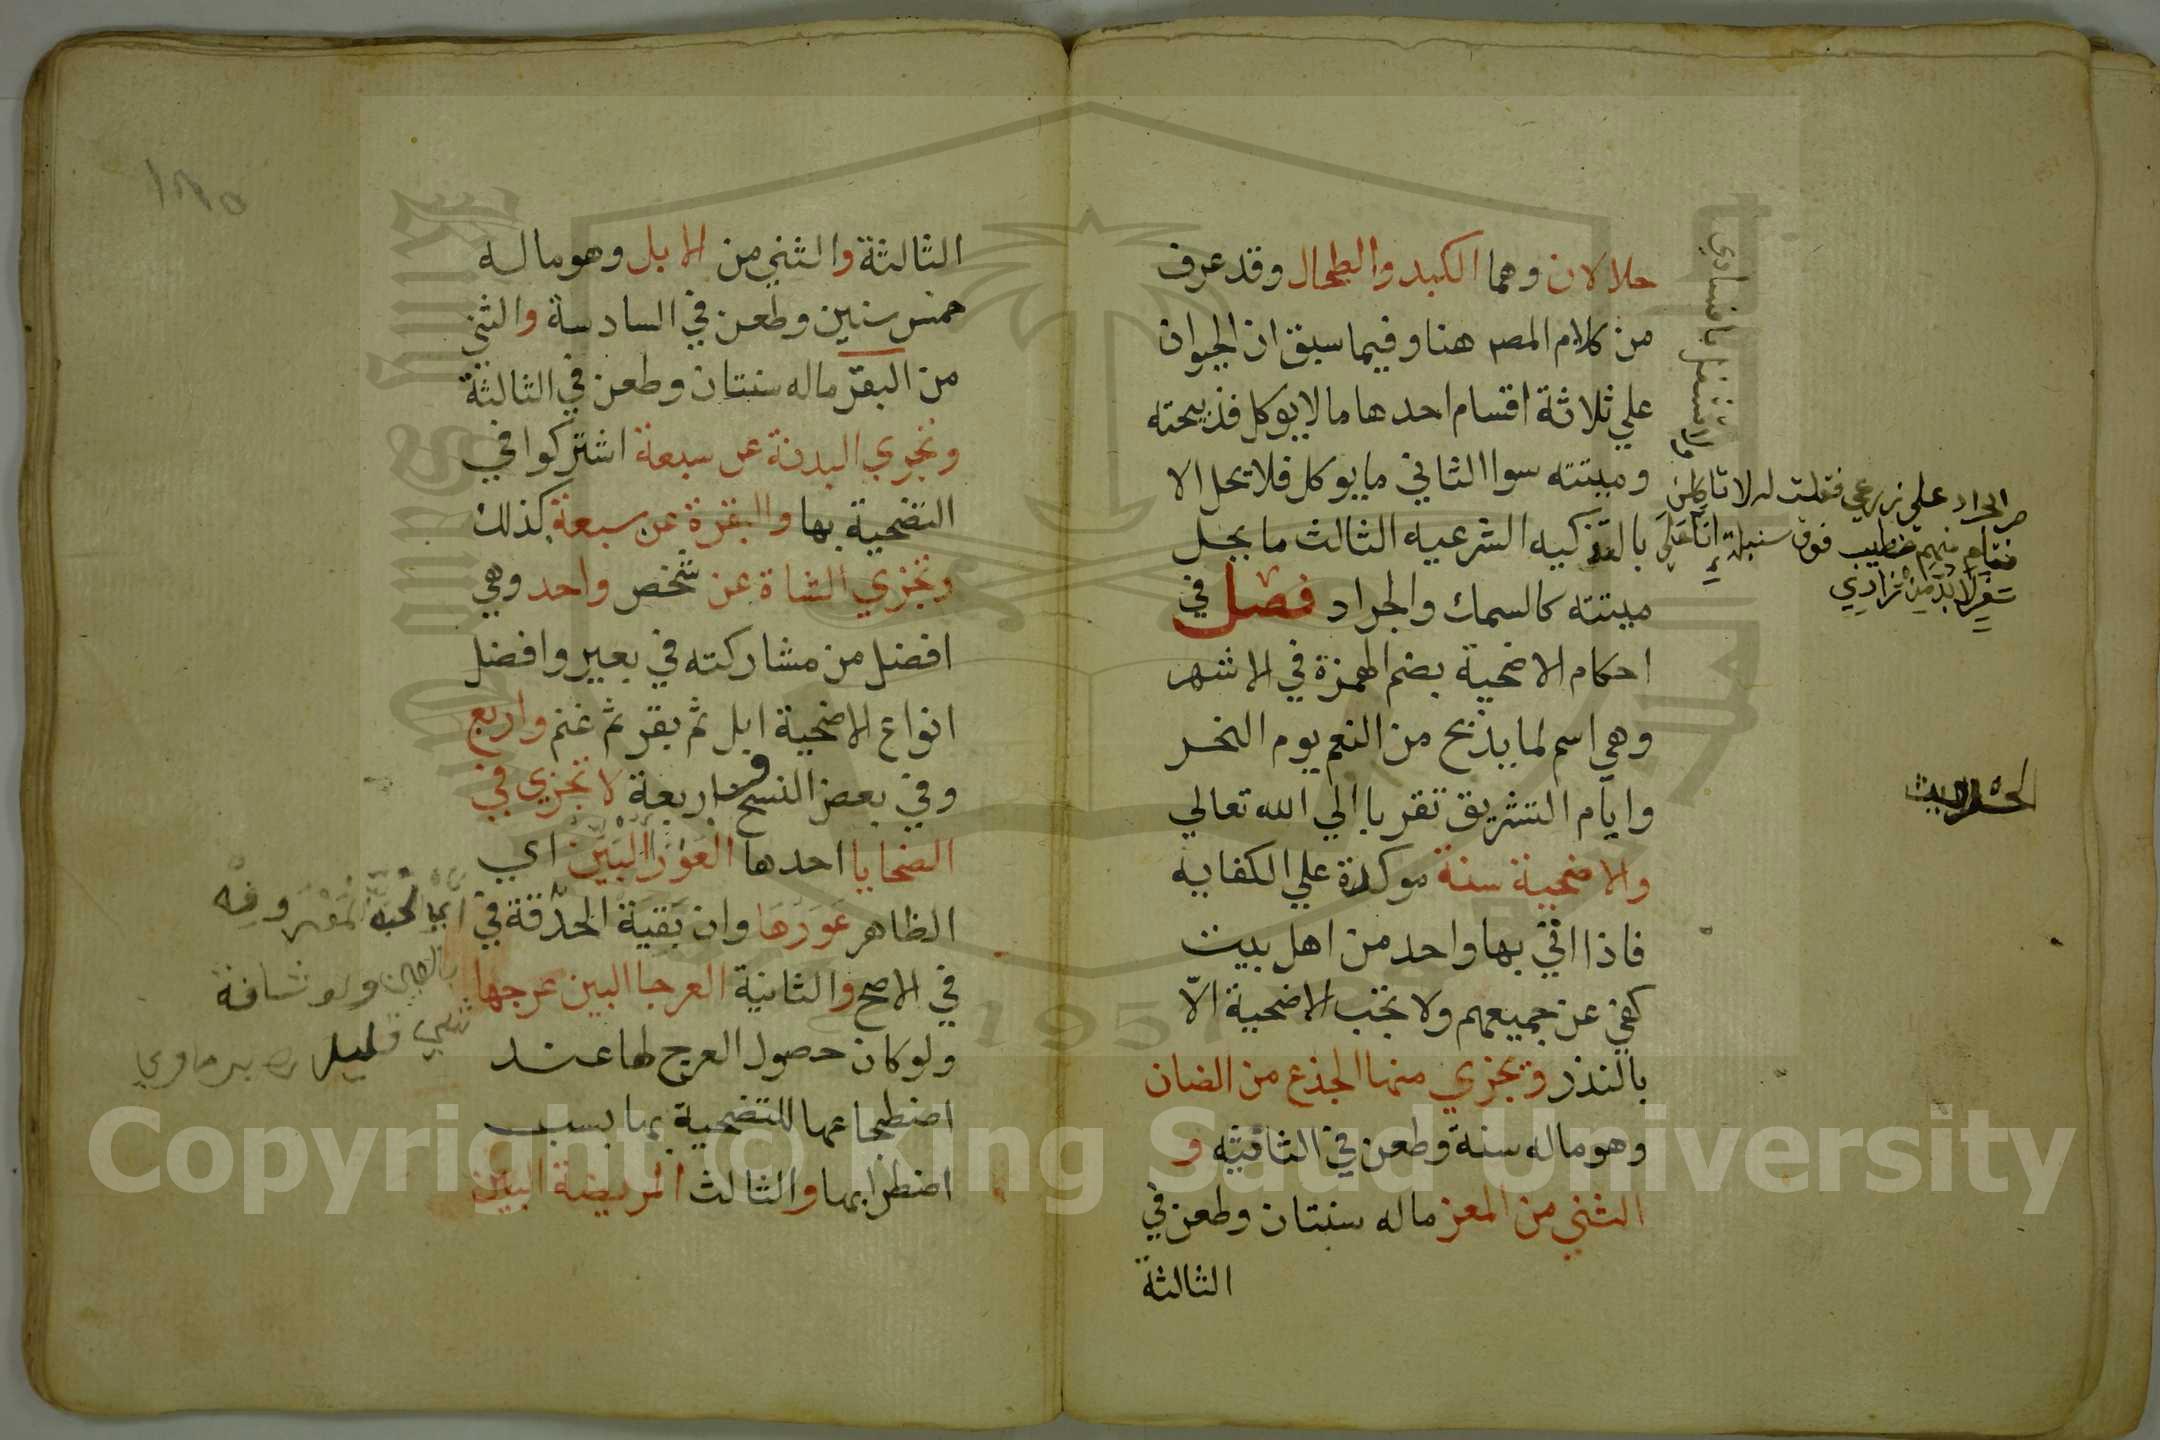 حلالان وهما الكبد والطحال وقد عرف
من كلام المصر هنا وفيما سبق ان الحيوان
علي ثلاثة اقسام احدها ما لا يوكل فذبيحته
وميتته سوا الثاني ما يوكل فلا يحل الا
بالتذكيه الشرعيه الثالث ما يحل
ميتته كالسمك والجراد فصل في
احكام الاضحية بضم الهمزة في الاشهر
وهي اسم لما يذبح من النعم يوم النحر
وايام التشريق تقربا الي الله تعالي
والاضحية سنة موكدة علي الكفايه
فاذا اتي بها واحد من اهل بيت
كفي عن جميعهم ولا تجب الاضحية الّا
بالنذر ويجزي منها الجذع من الضان
وهو ماله سنة وطعن في الثانيه و
الثني من المعز ماله سنتان وطعن في
الثالثة
مر الجراد علي زرعي فقلت له لا تاكلن
ولا تشغل بافسادي
فقام منهم خطيب فوق سنبلة إنّا علي
سفر لا بدّ من زادي
الحديث
١٨٥
الثالثة والثني من الابل وهو ماله
خمس سنين وطعن في السادسة والثني
من البقر ماله سنتان وطعن في الثالثة
وتجزي البدنة عن سبعة اشتركوا في
التضحية بها والبقرة عن سبعة كذلك
وتجزي الشاة عن شخص واحد وهي
افضل من مشاركته في بعير وافضل
انواع الاضحية ابل ثم بقر ثم غنم واربع
وفي بعض النسخ واربعة لا تجزي في
الضحايا احدها العَوْرَا البَيّن اي
الظاهر عَوَرهَا وان بَقيَة الحدّقة في
في الاصح والثانية العرجا البين عرجها
ولو كان حصول العرج لها عند
اضطجاعها للتضحية بها بسبب
اضطرابها والثالث المريضة البين
ولو شافة
قليل برماوي
Copyright © King Saud University
1957